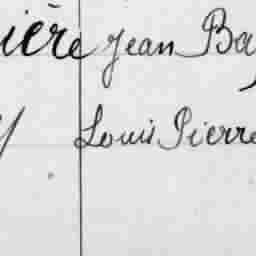 ière Jean Ba
y Louis Pierre